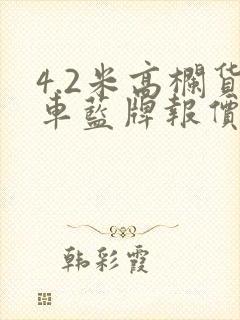 4.2米高欄貨
車藍牌報價
韩彩霞